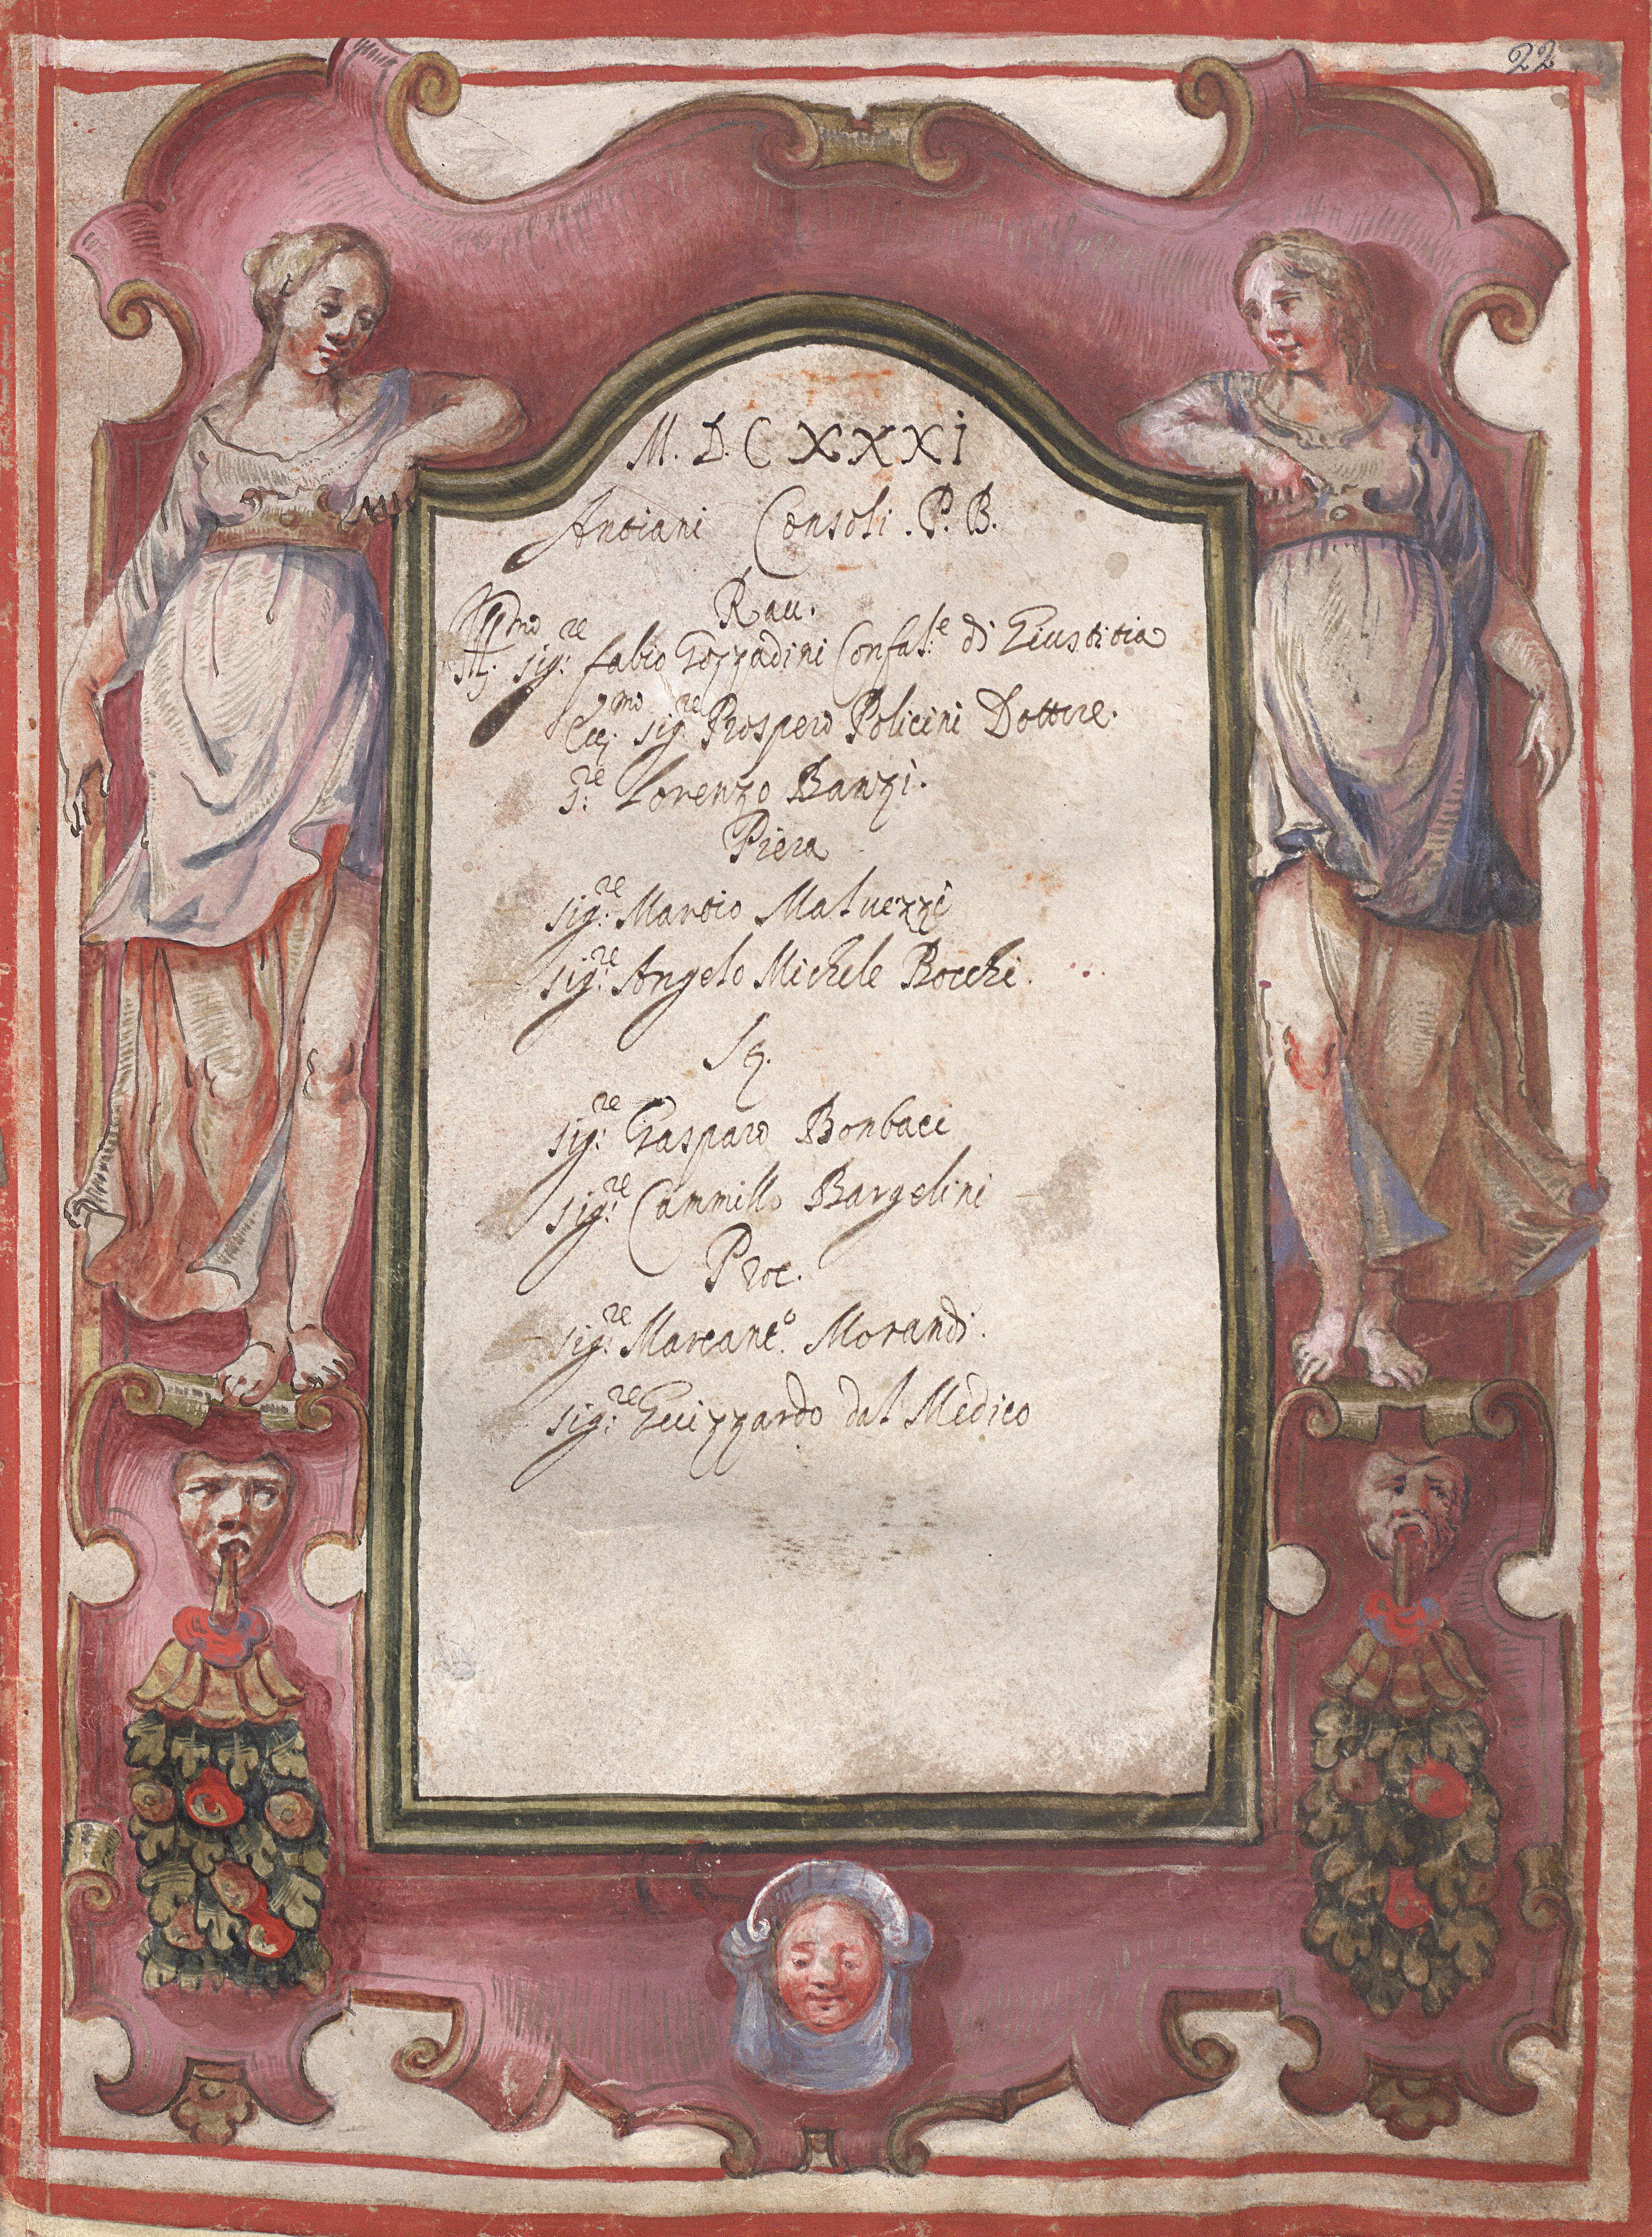 22
M. D. C XXXI
Antiani Consoli . P. B.
Rau.
Ill.mo sig:re fabio Gozzadini Confal:e di Giustitia
Ecc.mo sig.re Prospero Policini Dottore.
S:re Lorenzo Banzi.
Piera
sig:re Martio Maluezzi
sig:re Angelo Michele Bocchi.
Sq.
sig:re Gasparo Bonbaci
sig:re Cammillo Bargelini
Proc.
sig:re Marcant.o Morandi.
sig:re Guizzardo dal Medico